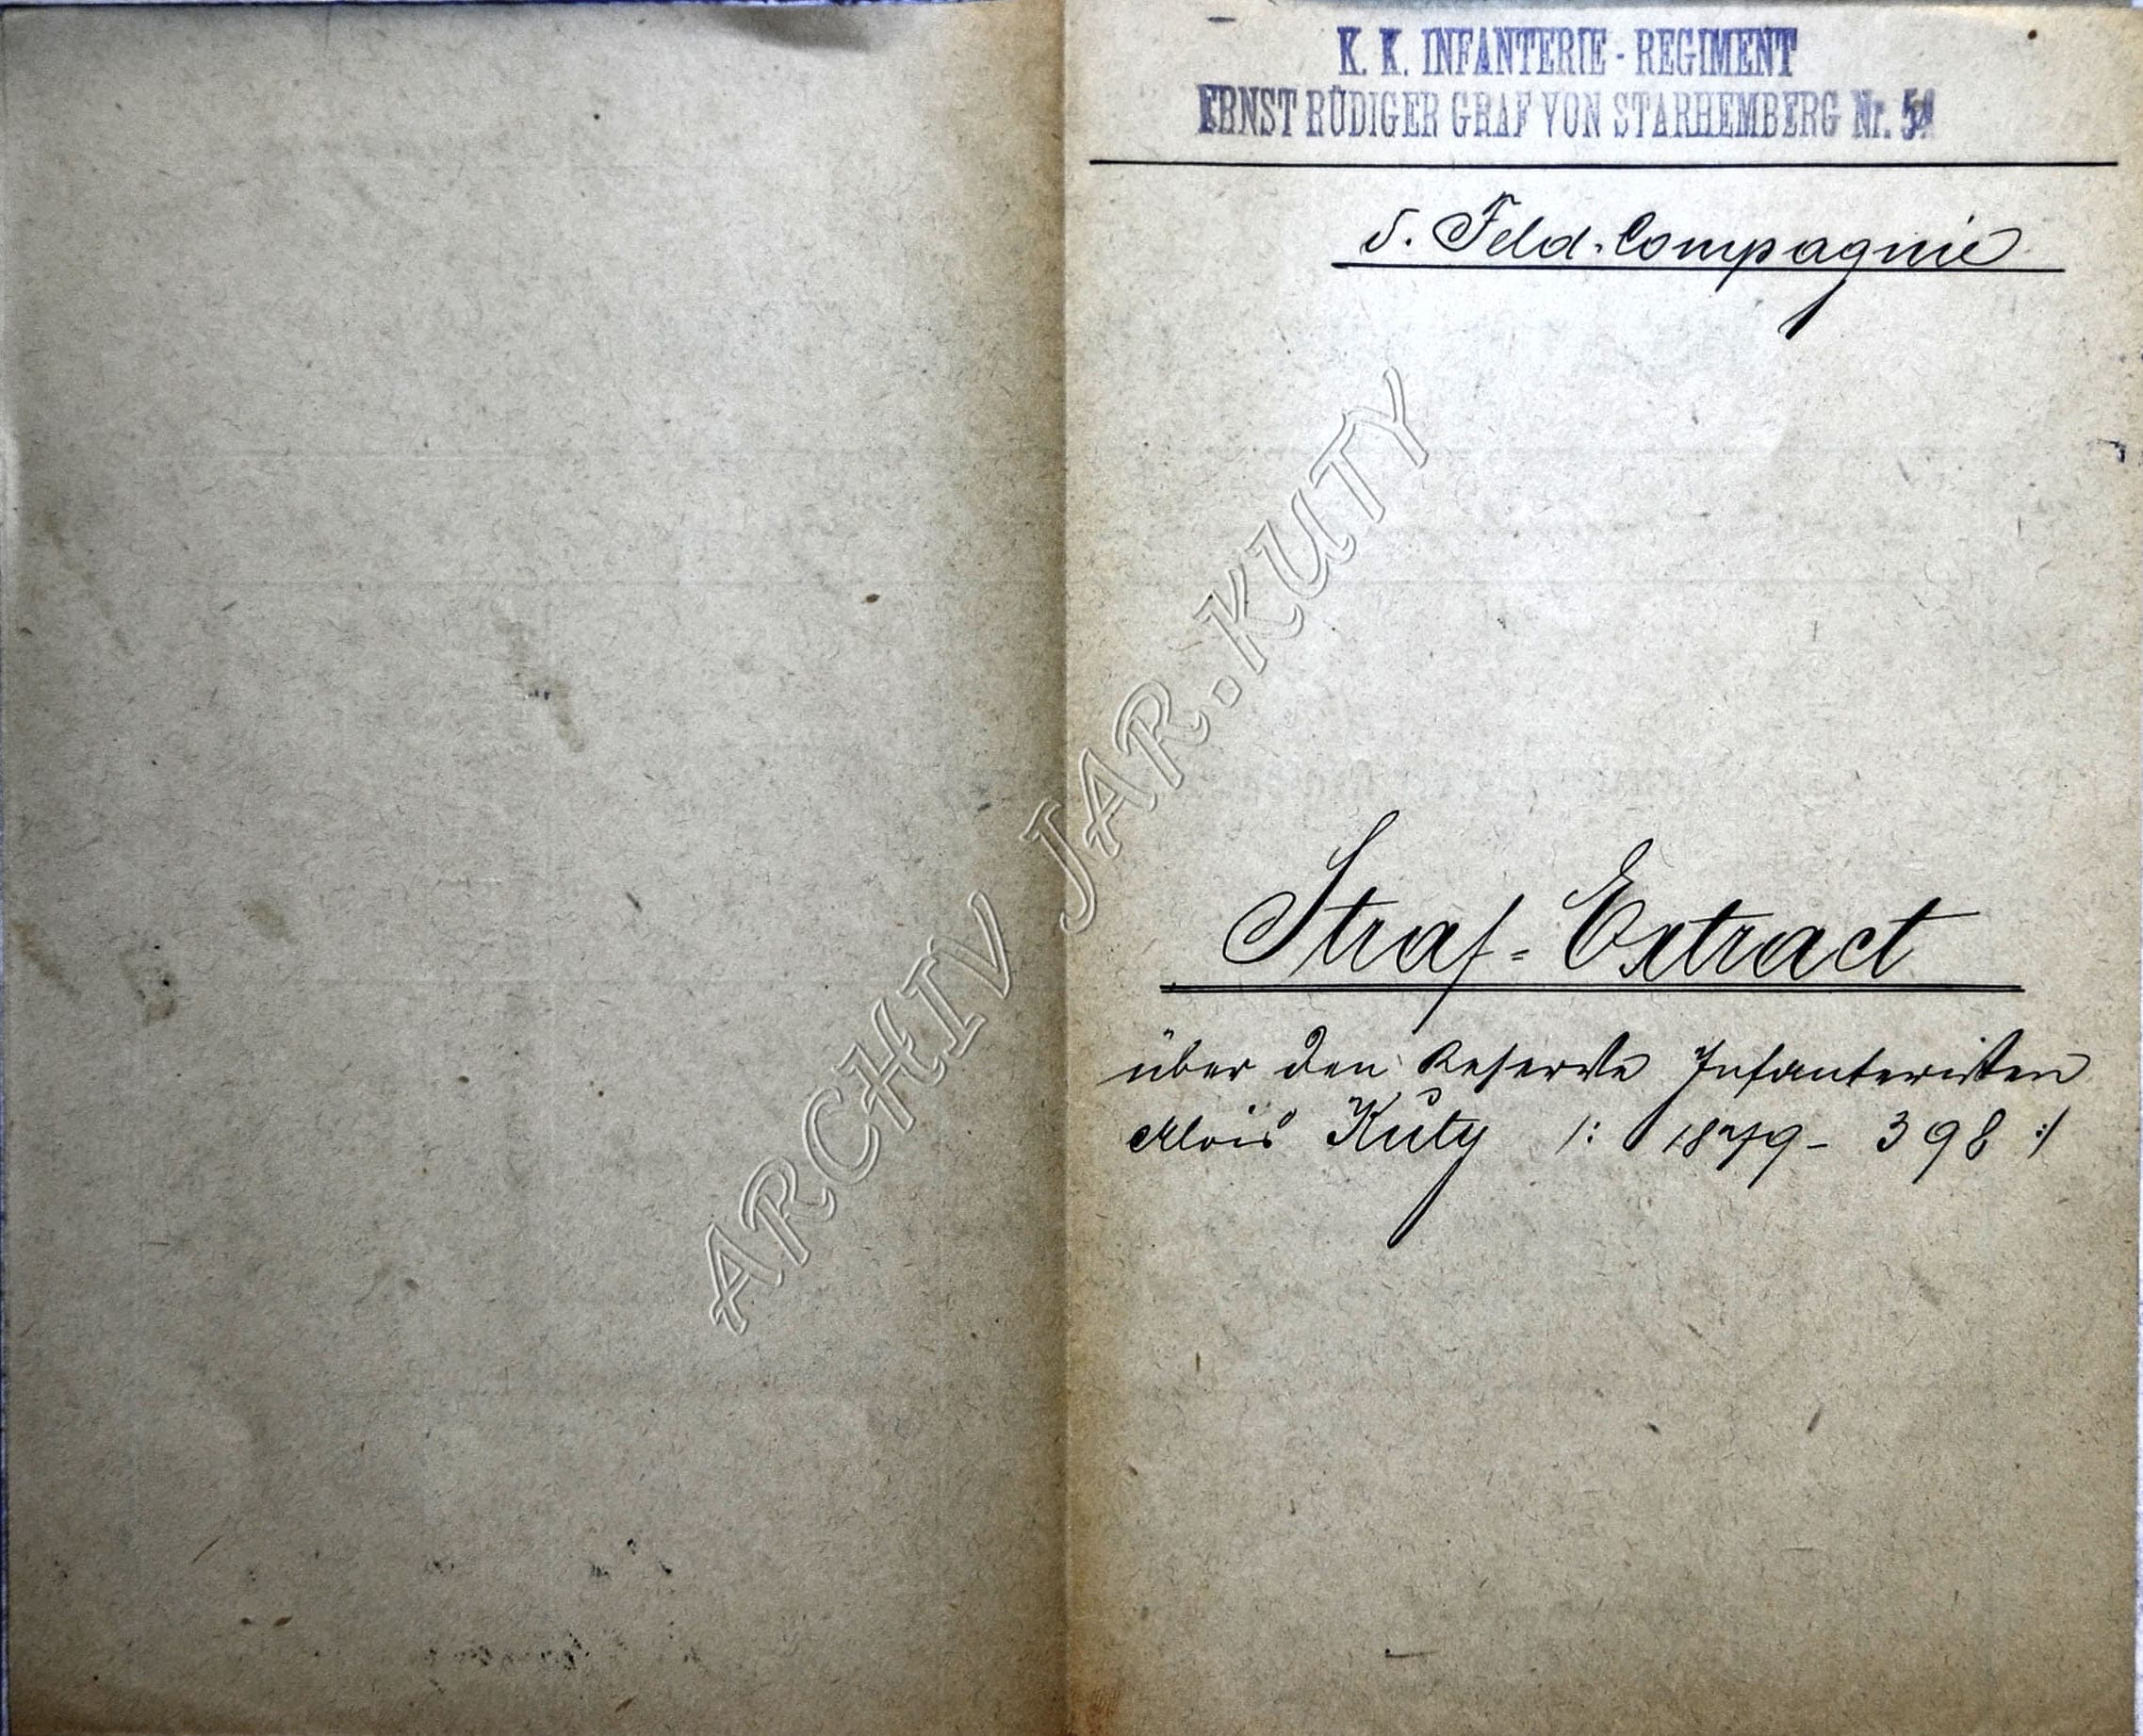 K. K. INFANTERIE - REGIMENT
ERNST RÜDIGER GRAF VON STARHEMBERG Nr. 54
5. Feld-Compagnie
Straf-Extract
über den Reserve Infanteristen
Alois Kuty /: 1879 - 398 :/
ARCHIV JAR. KUTY